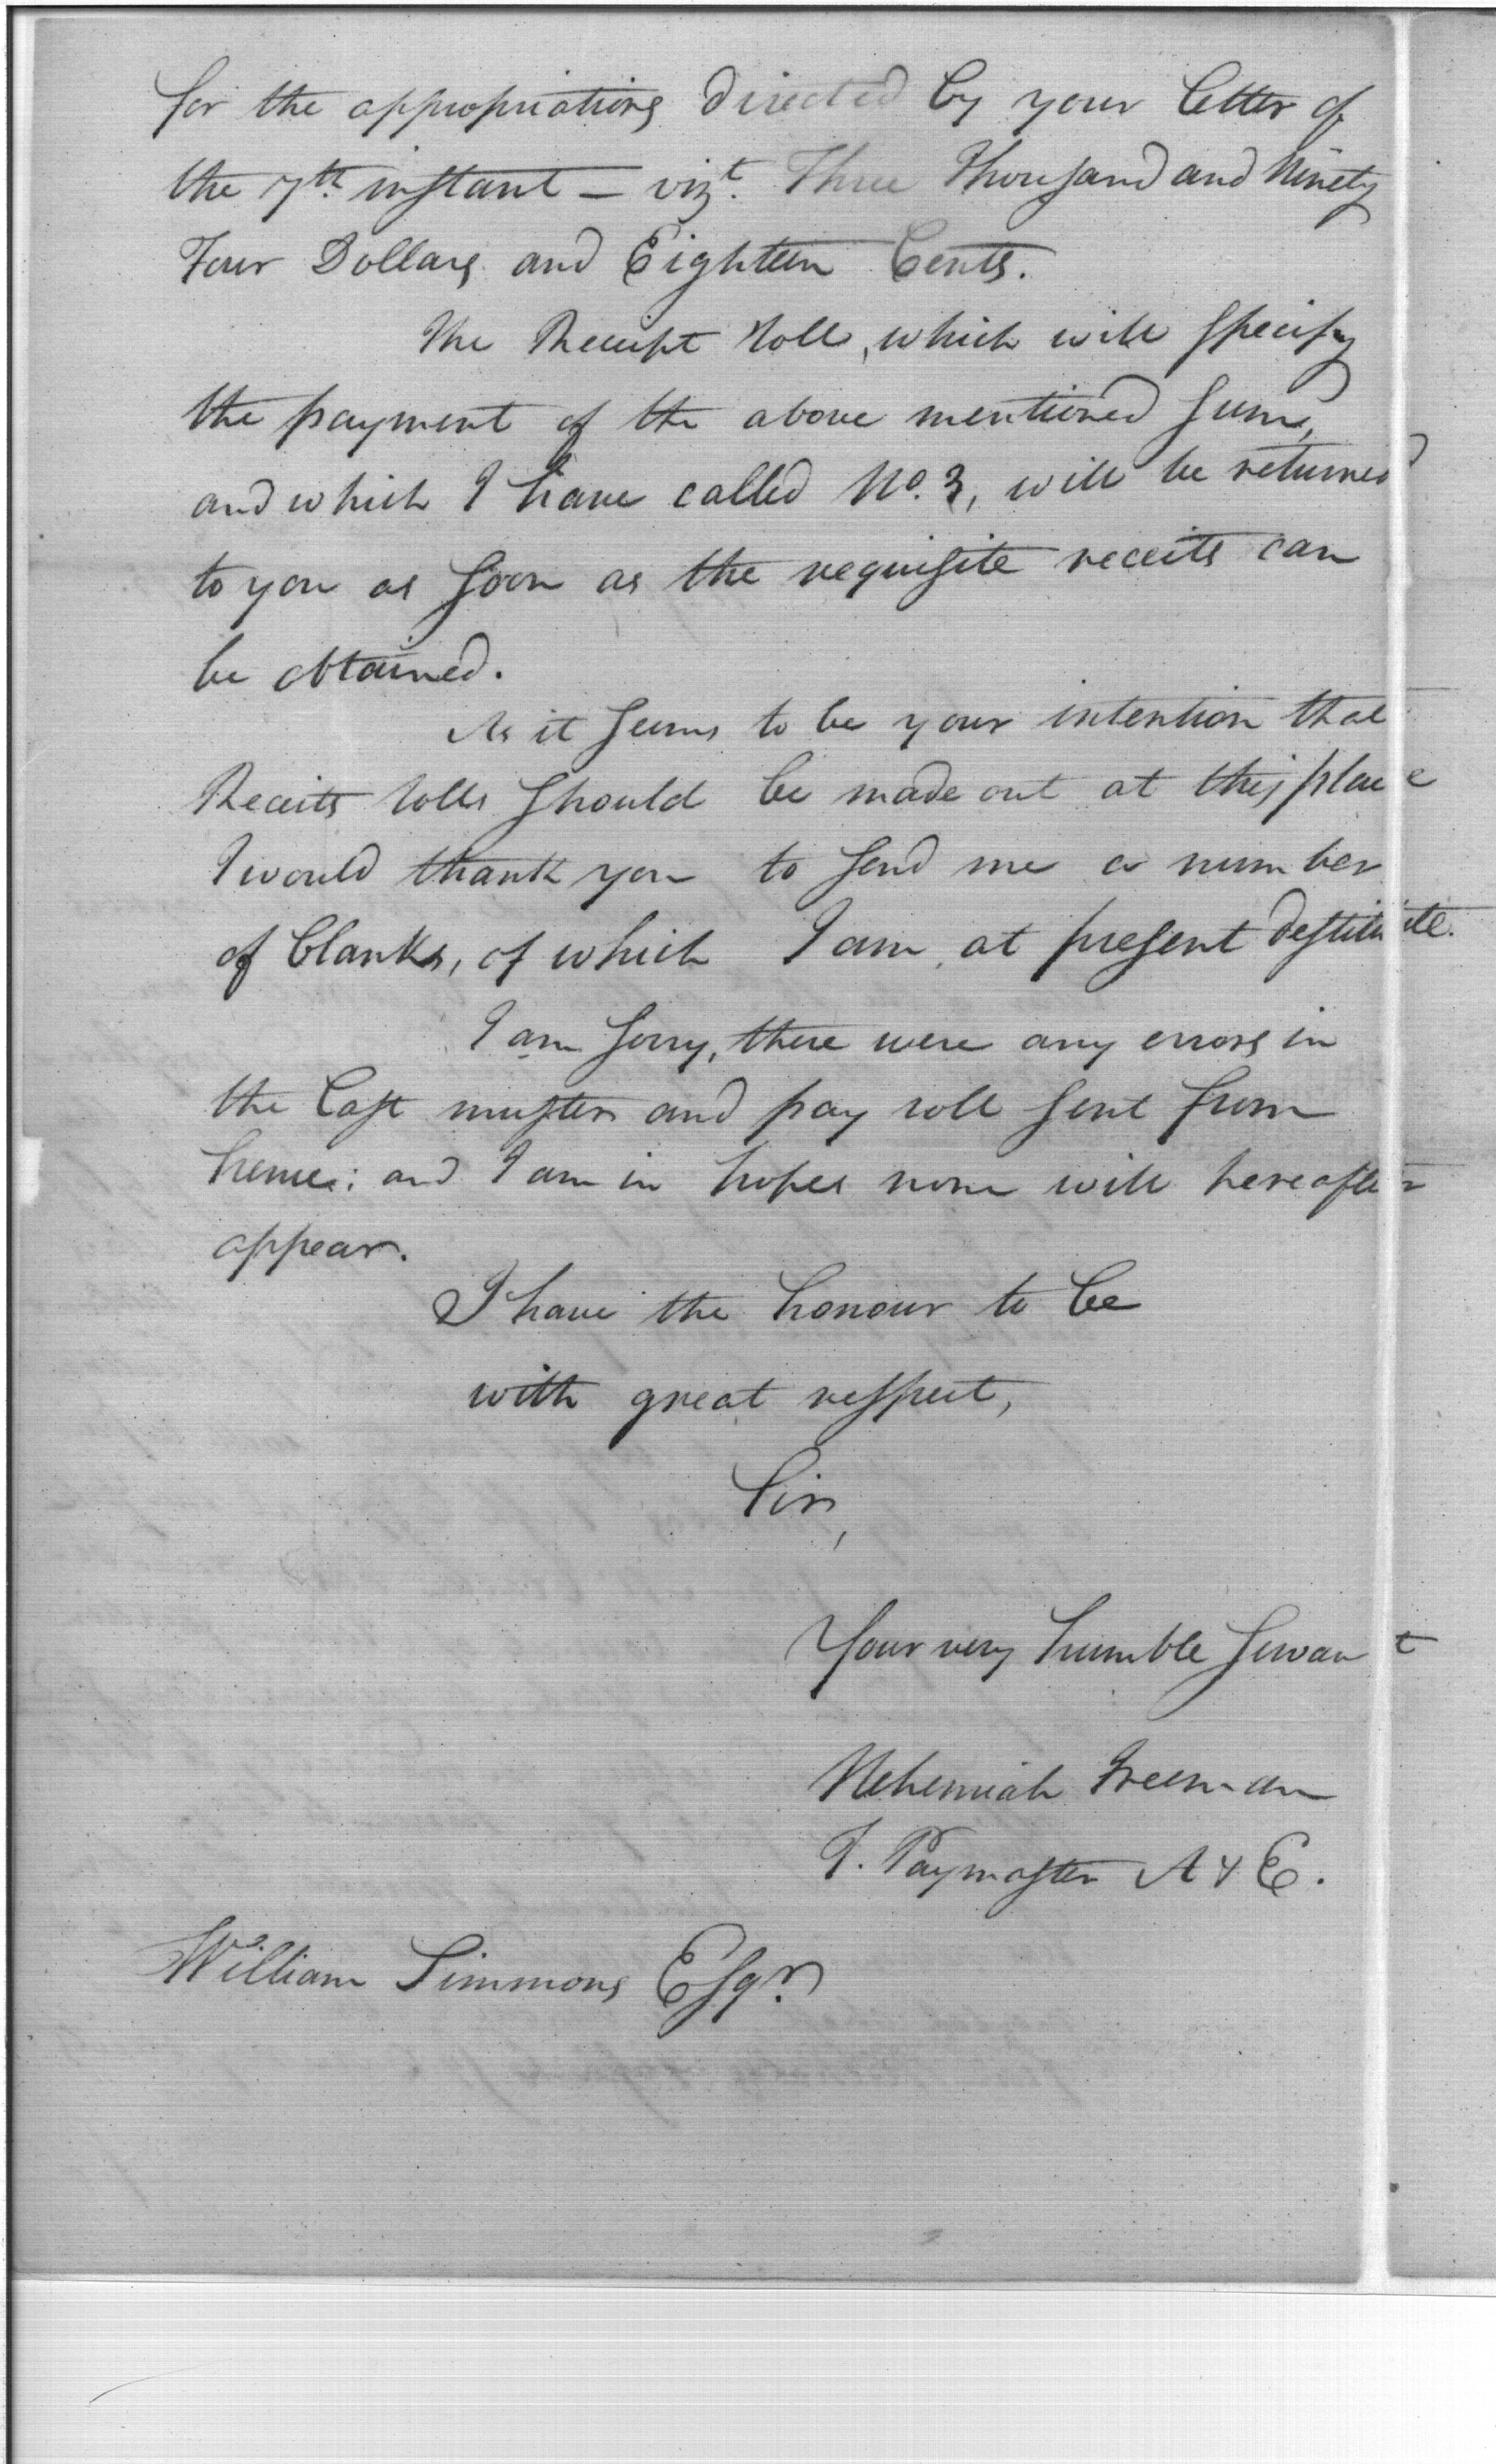 for the appropriations directed by your letter of
the 7th instant – vizt. Three Thousand and Ninety
Four Dollars and Eighteen Cents.
The Receipt roll, which will specify
the payment of the above mentioned sum,
and which I have called No. 3, will be returned
to you as soon as the requisite receits can
be obtained.
As it seems to be your intention that
Receits rolls should be made out at this place
I would thank you to send me a number
of blanks, of which I am, at present destitute.
I am sorry, there were any errors in
the last muster and pay roll sent from
hence; and I am in hopes none will hereafter
appear.
I have the honour to be
with great respect,
Sir,
Your very humble servant
Nehemiah Freeman
P. Paymaster A & E.
William Simmons Esqr.